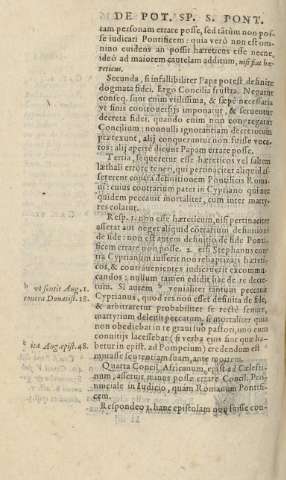 DE POT. SP. S. PONT.
tam personam errare posse, sed tãtùm non pos-
se iudicari Pontificem: quia verò non est om-
nino euidens an possit hæreticus esse necne,
ideò ad maiorem cautelam additum, nisi fiat hæ-
reticus.
Secunda, si infallibiliter Papa potest definire
dogmata fidei. Ergo Concilia frustra. Negatur
conseq. sunt enim vtilissima, & sæpè necessaria
vt finis controuersijs imponatur, & seruentur
decreta fidei. quando enim non congregatur
Concilium: nonnulli ignorantiam decretorum
prætexunt, alij conqueruntur non fuisse voca-
tos: alij apertè dicunt Papam errare posse.
Tertia, sequeretur esse hæreticos vel saltem
læthali errore teneri, qui pertinaciter aliquid as-
sererent contra definitionem Pontificis Roma-
ni: cuius contrarium patet in Cypriano qui ne
quidem peccauit mortaliter, cum inter marty-
res colatur.
Resp. 1. non esse hæreticum, nisi pertinaciter
asserat aut neget aliquid contrarium definitioni
de fide: non est autem definitio de fide Ponti-
ficem errare non posse. 2. etsi Stephanus con-
tra Cyprianum iusserit non rebaptizari hæreti-
cos, & contrauenientes iudicauerit excommu-
candos: nullum tamen edidit hac de re decre-
tum. Si autem venialiter tantùm peccauit
Cyprianus, quòd res non esset definita de fide,
& arbitraretur probabiliter se rectè sentire,
martyrium deleuit peccatum; si mortaliter quia
non obediebat in re graui suo pastori, imò eum
conuitijs lacessebat (si verba eius sunt quæ ha-
bentur in epist. ad Pompeium) credendum est
mutasse sententiam suam, ante mortem.
Quarta Concil. Africanum, epist. ad Cælesti-
num, asserit minus posse errare Concil. Pro-
uinciale in iudicio, quàm Romanum Pontifi-
cem.
Respondeo 1. hanc epistolam non fuisse con-
vt sentit Aug. 1.
contra Donatist. 18.
ita Aug. epist. 48.